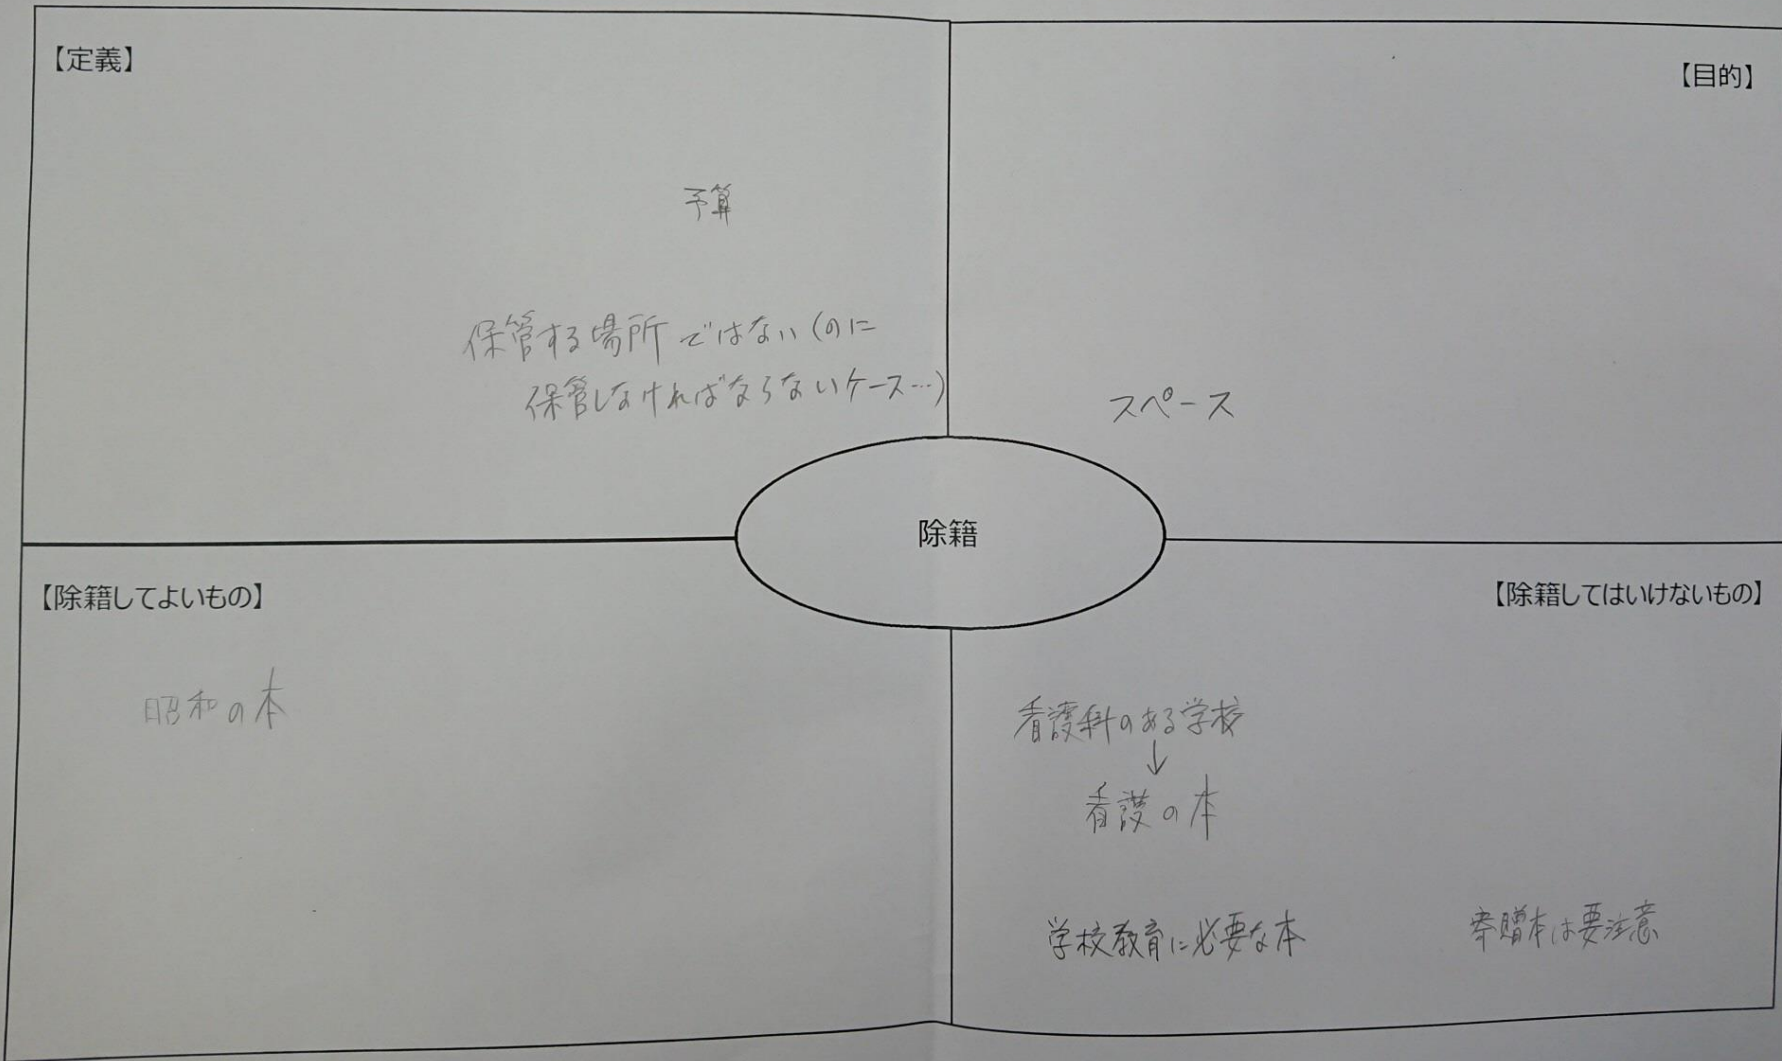 【定義】
予算
保管する場所ではない(のに
保管しなければならないケース…)
【目的】
スペース
除籍
【除籍してよいもの】
昭和の本
【除籍してはいけないもの】
看護科のある学校
↓
看護の本
学校教育に必要な本
寄贈本は要注意